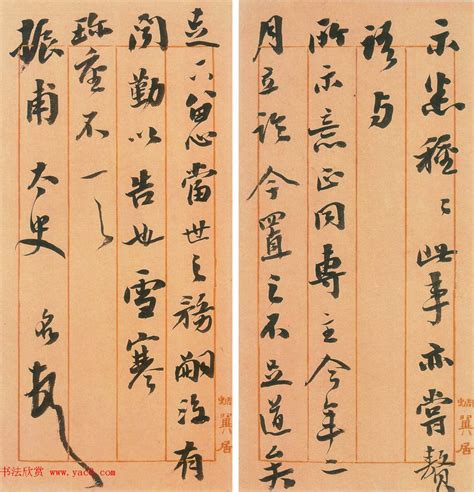 示悉種〻此事亦嘗贅
語与
所示意正同專主今年二
月立論今置之不足道矣
足下留心當世之務嗣後有
聞勤以告也雪寒
珍重不一一
振甫太史 名
居
居
书法欣赏 www.yac8.com